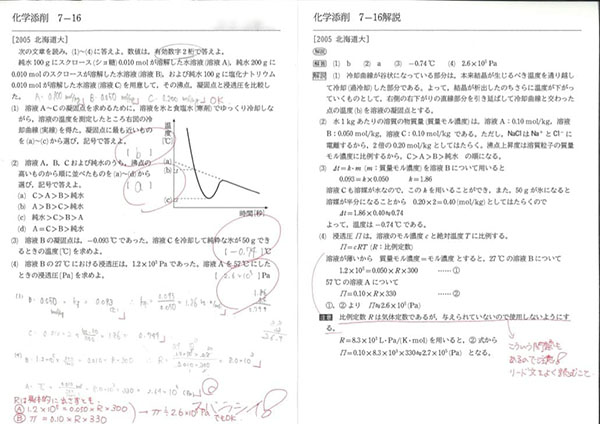 化学添削 7−16
[2005 北海道大]
次の文章を読み、(1)〜(4)に答えよ。数値は、有効数字2桁で答えよ。
純水100gにスクロース(ショ糖)0.010molが溶解した水溶液(溶液A)、純水200gに
0.010molのスクロースが溶解した水溶液(溶液B)、および純水100gに塩化ナトリウム
0.010molが溶解した水溶液(溶液C)を用意して、その沸点、凝固点と浸透圧を比較し
た。
OK
(1) 溶液A〜Cの凝固点を求めるために、溶液を氷と食塩水(寒剤)でゆっくり冷却しな
がら、溶液の温度を測定したところ右図の冷
却曲線(実線)を得た。凝固点に最も近いもの
を(a)〜(c)から選び、記号で答えよ。
[ b ]
(2) 溶液A、B、Cおよび純水のうち、沸点の
高いものから順に並べたものを(a)〜(d)から
選び、記号で答えよ。
[ a ]
(a) C>A>B>純水
(b) A>B>C>純水
(c) 純水>C>B>A
(d) A>C>B>純水
温度[℃]
(a)
(b)
(c)
時間[秒]
(3) 溶液Bの凝固点は、−0.093℃であった。溶液Cを冷却して純粋な氷が50gでき
るときの温度[℃]を求めよ。
[ −0.74 ]℃
(4) 溶液Bの27℃における浸透圧は、1.2×10⁵Paであった。溶液Aを57℃にした
ときの浸透圧[Pa]を求めよ。
[ 2.6×10⁵ ]Pa
Ⓐ 1.2×10⁵=0.050×R×300
Ⓑ π=0.10×R×330
→π≒2.6×10⁵Pa
でもOK
化学添削 7−16解説
[2005 北海道大]
解答 (1) b (2) a (3) −0.74℃ (4) 2.6×10⁵Pa
解説 (1) 冷却曲線が谷状になっている部分は、本来結晶が生じるべき温度を通り越し
て冷却(過冷却)した部分である。よって、結晶が析出したのちさらに温度が下がっ
ていくものとして、右側の右下がりの直線部分を引き延ばして冷却曲線と交わった
点の温度(b)を溶液の凝固点とする。
(2) 水1kgあたりの溶質の物質量(質量モル濃度)は、溶液A:0.10mol/kg、溶液
B:0.050mol/kg、溶液C:0.10mol/kgである。ただし、NaClはNa⁺とCl⁻に
電離するから、2倍の0.20mol/kgとしてはたらく。沸点上昇度は溶質粒子の質量
モル濃度に比例するから、C>A>B>純水 の順になる。
(3) Δt=k・m(m:質量モル濃度)を溶液Bについて用いると
0.093=k×0.050 k=1.86
溶液Cも溶媒が水なので、このkを用いることができ、また、50gが氷になると
溶媒が半分になることから 0.20×2=0.40(mol/kg)としてはたらくので
Δt=1.86×0.40≒0.74
よって、温度は−0.74℃である。
(4) 浸透圧Πは、溶液のモル濃度cと絶対温度Tに比例する。
Π=cRT(R:比例定数)
溶液が薄いから 質量モル濃度=モル濃度とすると、27℃の溶液Bについて
1.2×10⁵=0.050×R×300 ……①
57℃の溶液Aについて
Π=0.10×R×330 ……②
①、②より Π≒2.6×10⁵(Pa)
注意 比例定数Rは気体定数であるが、与えられていないので使用しないようにす
る。
R=8.3×10³L・Pa/(K・mol)を用いると、②式から
Π=0.10×8.3×10³×330≒2.7×10⁵(Pa) となる。
こういう問題も
あるので注意!
リード文をよく読むこと